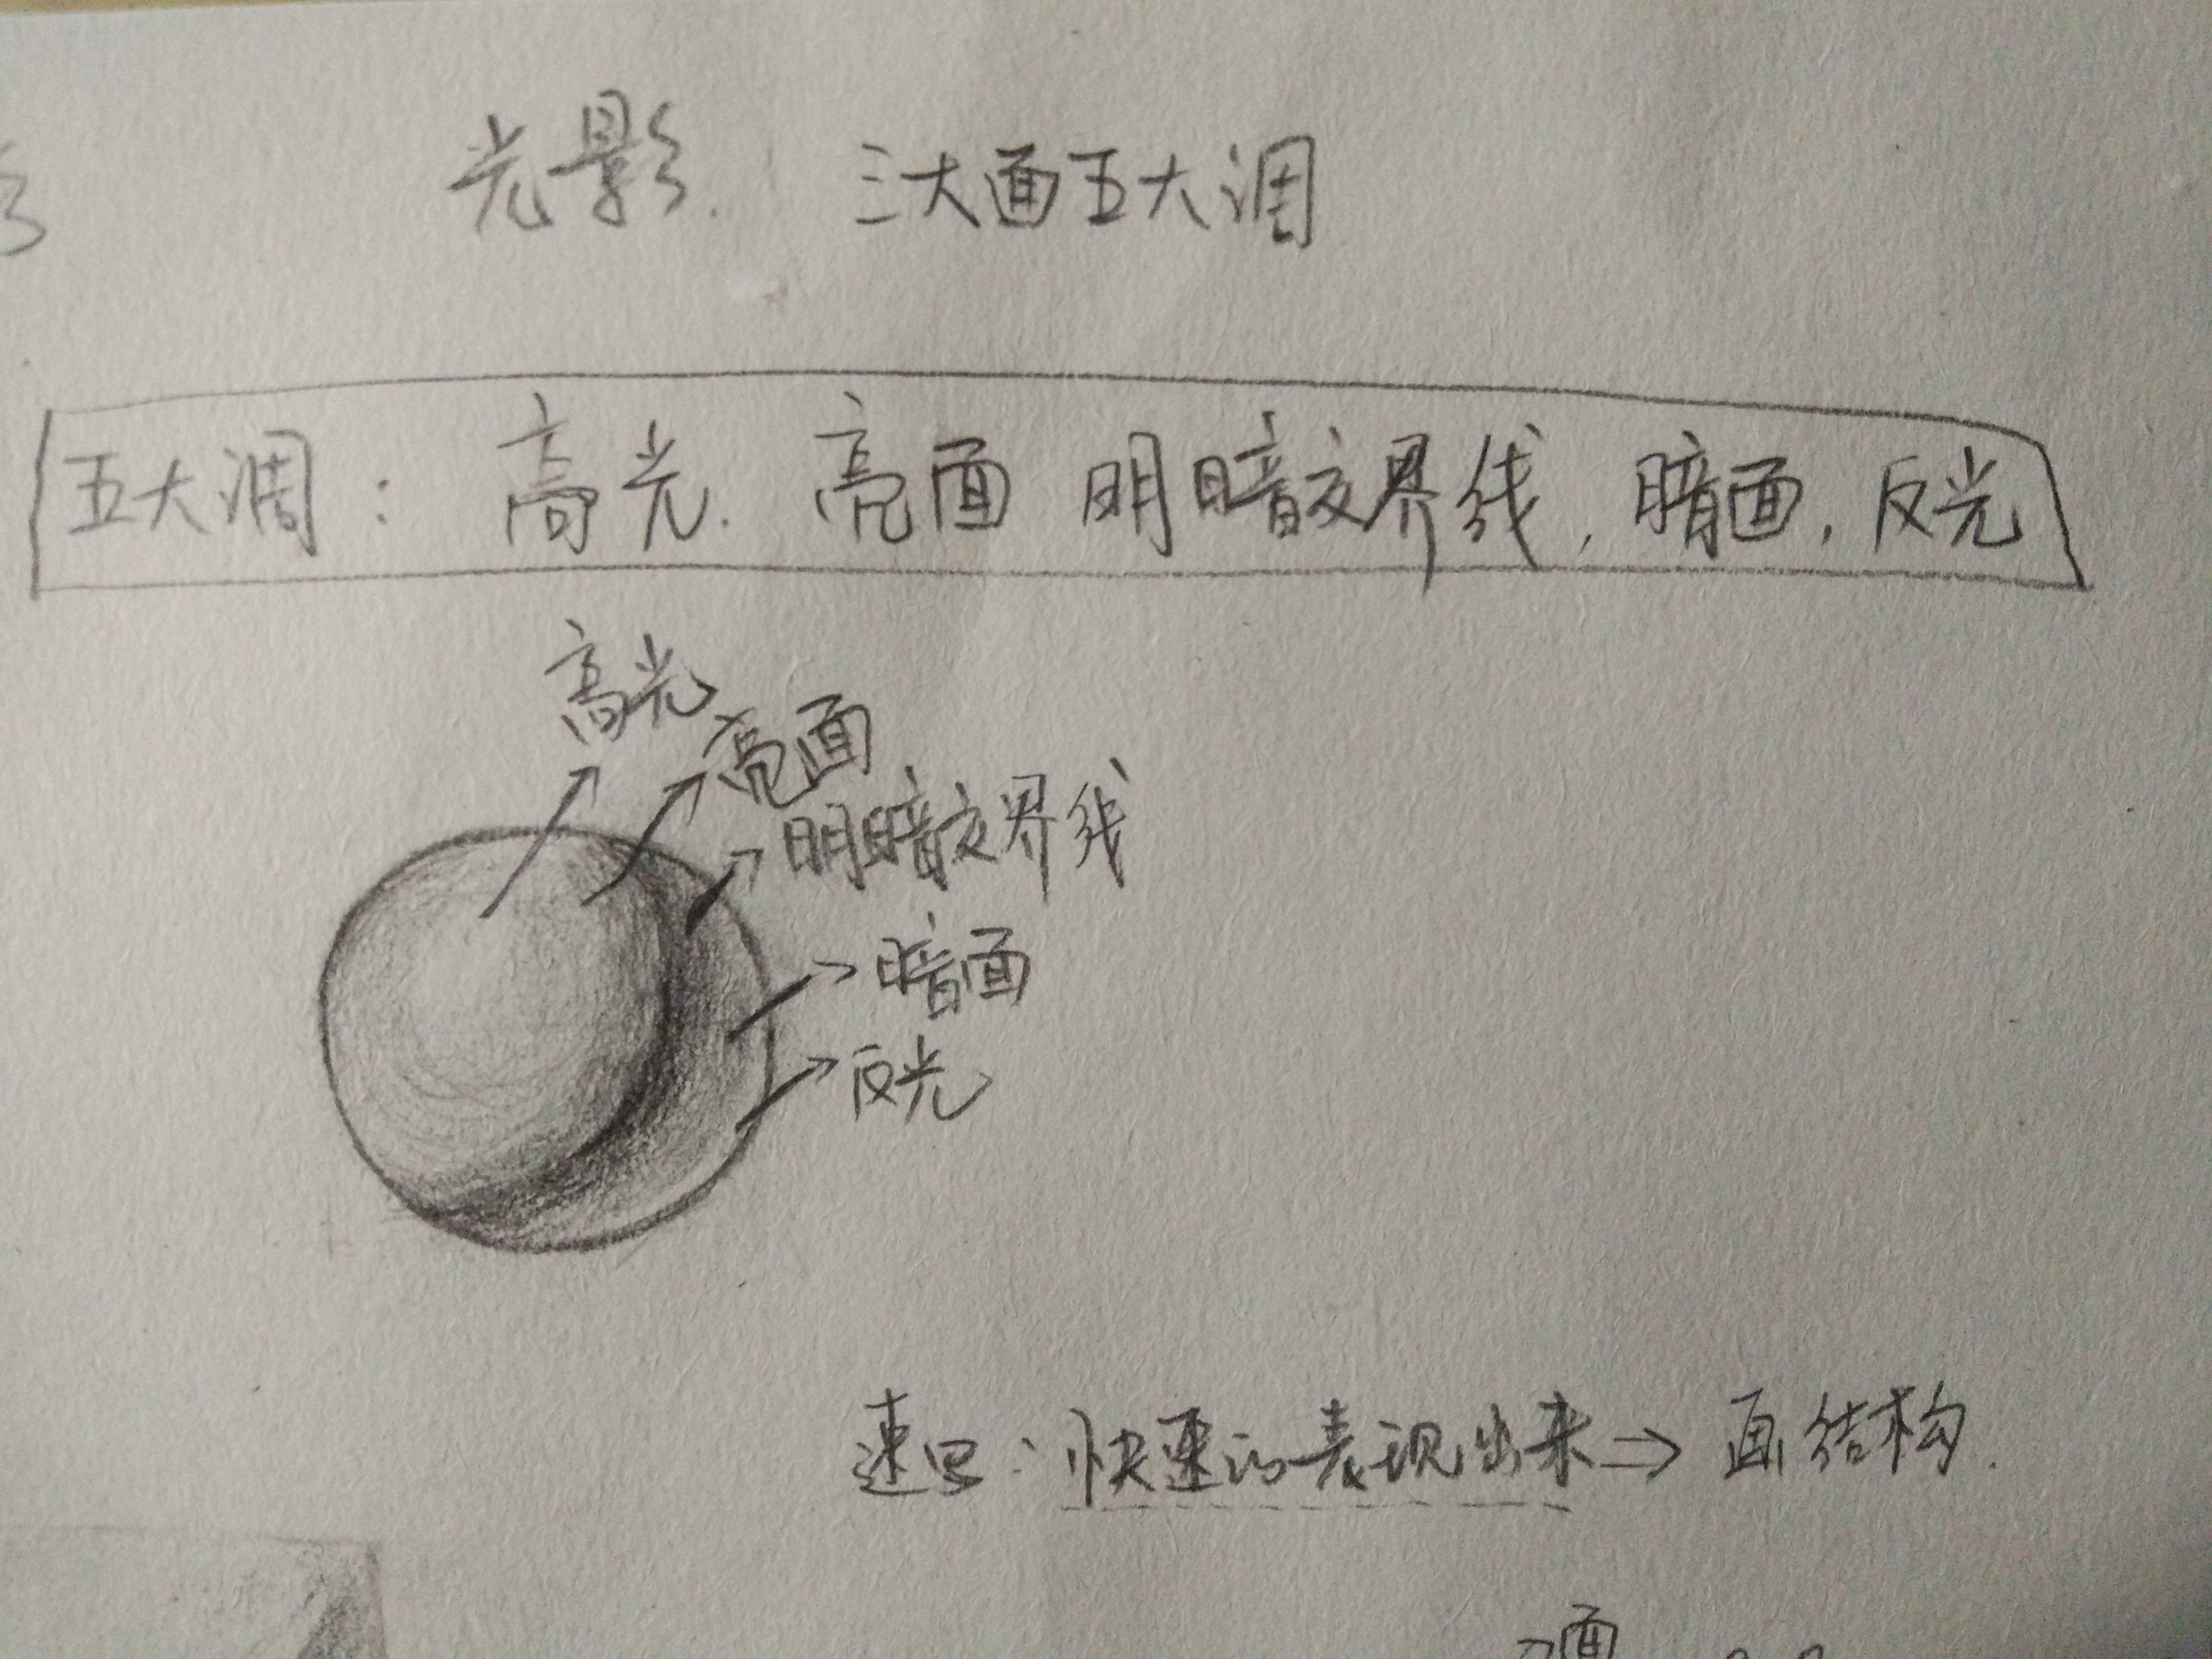 光影. 三大面五大调
五大调: 高光. 亮面 明暗交界线, 暗面, 反光
高光
亮面
明暗交界线
暗面
反光
速写: 快速的表现出来⇒ 画结构.
面